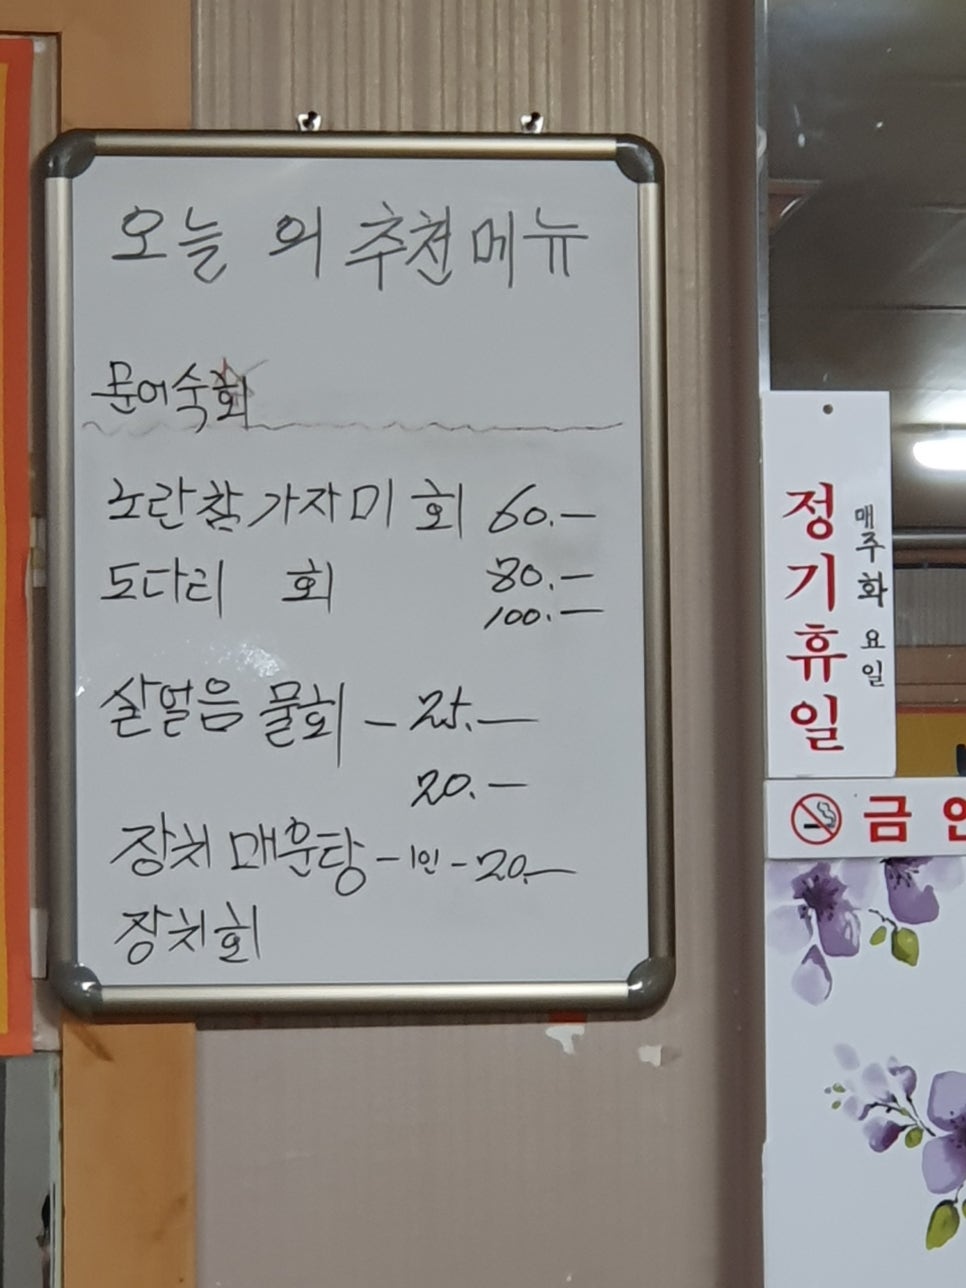 오늘의 추천메뉴
문어숙회
노란참가자미 회 60.—
도다리 회 80.—
100.—
살얼음 물회 – 25.—
20.—
장치 매운탕 – 1인 – 20.—
장치회
정기휴일
매주화요일
금연